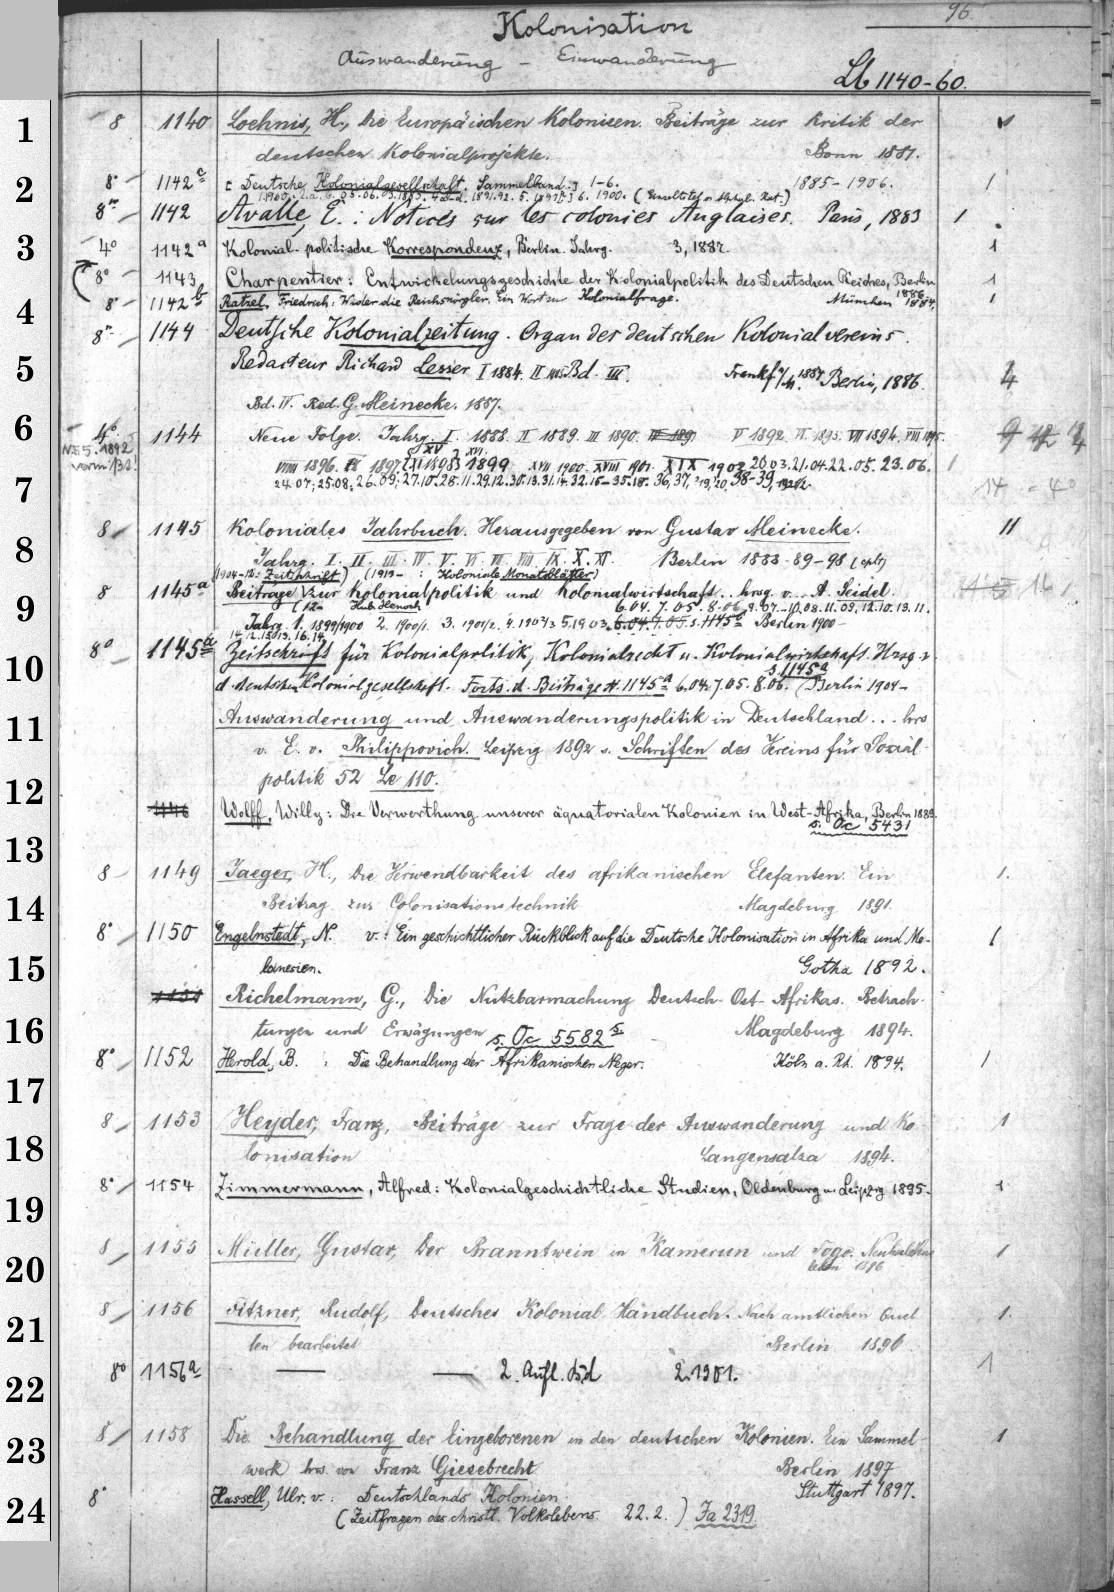 96
Kolonisation
Auswanderung - Einwanderung
Lb 1140-60.
1 8 1140 Loehnis, H., Die Europäischen Kolonieen. Beiträge zur Kritik der
deutschen Kolonialprojekte. Bonn 1881.
2 8° 1142c [Deutsche Kolonialgesellschaft. Sammelband.] 1-6. 1885-1906. 1
8° 1142 Avalle, E.: Notices sur les colonies Anglaises. Paris, 1883 1
3 4° 1142a Kolonial-politische Korrespondenz, Berlin. Jahrg. 3, 1887. 1
8° 1143 Charpentier: Entwickelungsgeschichte der Kolonialpolitik des Deutschen Reiches, Berlin 1886. 1
4 8° 1142b Ratzel, Friedrich: Wider die Reichsnörgler. Ein Wort zur Kolonialfrage. München 1884. 1
8° 1144 Deutsche Kolonialzeitung. Organ des deutschen Kolonialvereins.
5 Redacteur Richard Lesser I 1884. II 1885 Bd. III. Frankf a/M. 1887 Berlin, 1886. 4
Bd. IV. Red. G. Meinecke. 1887.
6 4° 1144 Neue Folge. Jahrg. I. 1888. II 1889. III 1890. V 1892. VI. 1893. VII 1894. VIII 1895.
1896. 1897 1899 XVII 1900. XVIII 1901. XIX 1902 20 03. 21. 04. 22. 05. 23. 06. 1
7 24. 07; 25. 08; 26. 09; 27. 10. 28. 11. 29. 12. 30. 13. 31. 14. 32. 15-35. 18. 36, 37, 19, 20, 38-39,
14 - 4°
8 1145 Koloniales Jahrbuch. Herausgegeben von Gustav Meinecke. 11
8 Jahrg. I. II. III. IV. V. VI. VII. VIII. IX. X. XI. Berlin 1888-89-98 (cplt)
(1904-12: Zeitschrift) (1913- : Koloniale Monatsblätter)
8 1145a Beiträge zur Kolonialpolitik und Kolonialwirtschaft.. hrsg. v. A. Seidel.
9 6. 04. 7. 05. 8. 06. 9. 07.-10. 08. 11. 09. 12. 10. 13. 11.
Jahrg. 1. 1899/1900 2. 1900/1. 3. 1901/2. 4. 1902/3 5. 1903 6. 04. 7. 05. s. 1145a Berlin 1900-
10 8° 1145a Zeitschrift für Kolonialpolitik, Kolonialrecht u. Kolonialwirtschaft. Hrsg. v.
s. 1145a
d. deutschen Kolonialgesellschaft. Forts. d. Beiträge # 1145a 6. 04. 7. 05. 8. 06. (Berlin 1904-
11 Auswanderung und Auswanderungspolitik in Deutschland... hrs
v. E. v. Philippovich. Leipzig 1892 s. Schriften des Vereins für Sozial-
12 politik 52 Le 110.
1146 Wolff, Willy: Die Verwerthung unserer äquatorialen Kolonien in West-Afrika, Berlin 1889.
s. Oc 5431
13 8 1149 Jaeger, H., Die Verwendbarkeit des afrikanischen Elefanten. Ein 1.
14 Beitrag zur Colonisationstechnik Magdeburg 1891.
8° 1150 Engelnstedt, N. v.: Ein geschichtlicher Rückblick auf die Deutsche Kolonisation in Afrika und Me- 1
15 lanesien. Gotha 1892.
1151 Richelmann, G., Die Nutzbarmachung Deutsch-Ost-Afrikas. Betrach-
16 tungen und Erwägungen s. Oc 5582 Magdeburg 1894.
8° 1152 Herold, B. : Die Behandlung der Afrikanischen Neger. Köln a. Rh. 1894. 1
17
8 1153 Heyder, Franz, Beiträge zur Frage der Auswanderung und Ko- 1
18 lonisation Langensalza 1894.
8° 1154 Zimmermann, Alfred: Kolonialgeschichtliche Studien, Oldenburg u. Leipzig 1895. 1
19
8 1155 Müller, Gustav, Der Branntwein in Kamerun und Togo. Neuhaldens 1
20 leben 1896
8 1156 Fitzner, Rudolf, Deutsches Kolonial Handbuch. Nach amtlichen Quel 1.
21 len bearbeitet Berlin 1896
8° 1156a — — 2. Aufl. Bd 2. 1901. 1
22
8 1158 Die Behandlung der Eingeborenen in den deutschen Kolonien. Ein Sammel 1
23 werk hrs. von Franz Giesebrecht Berlin 1897
8° Hassell, Ulr. v.: Deutschlands Kolonien. Stuttgart 1897.
24 (Zeitfragen des christl. Volkslebens. 22. 2.) Ja 2319.